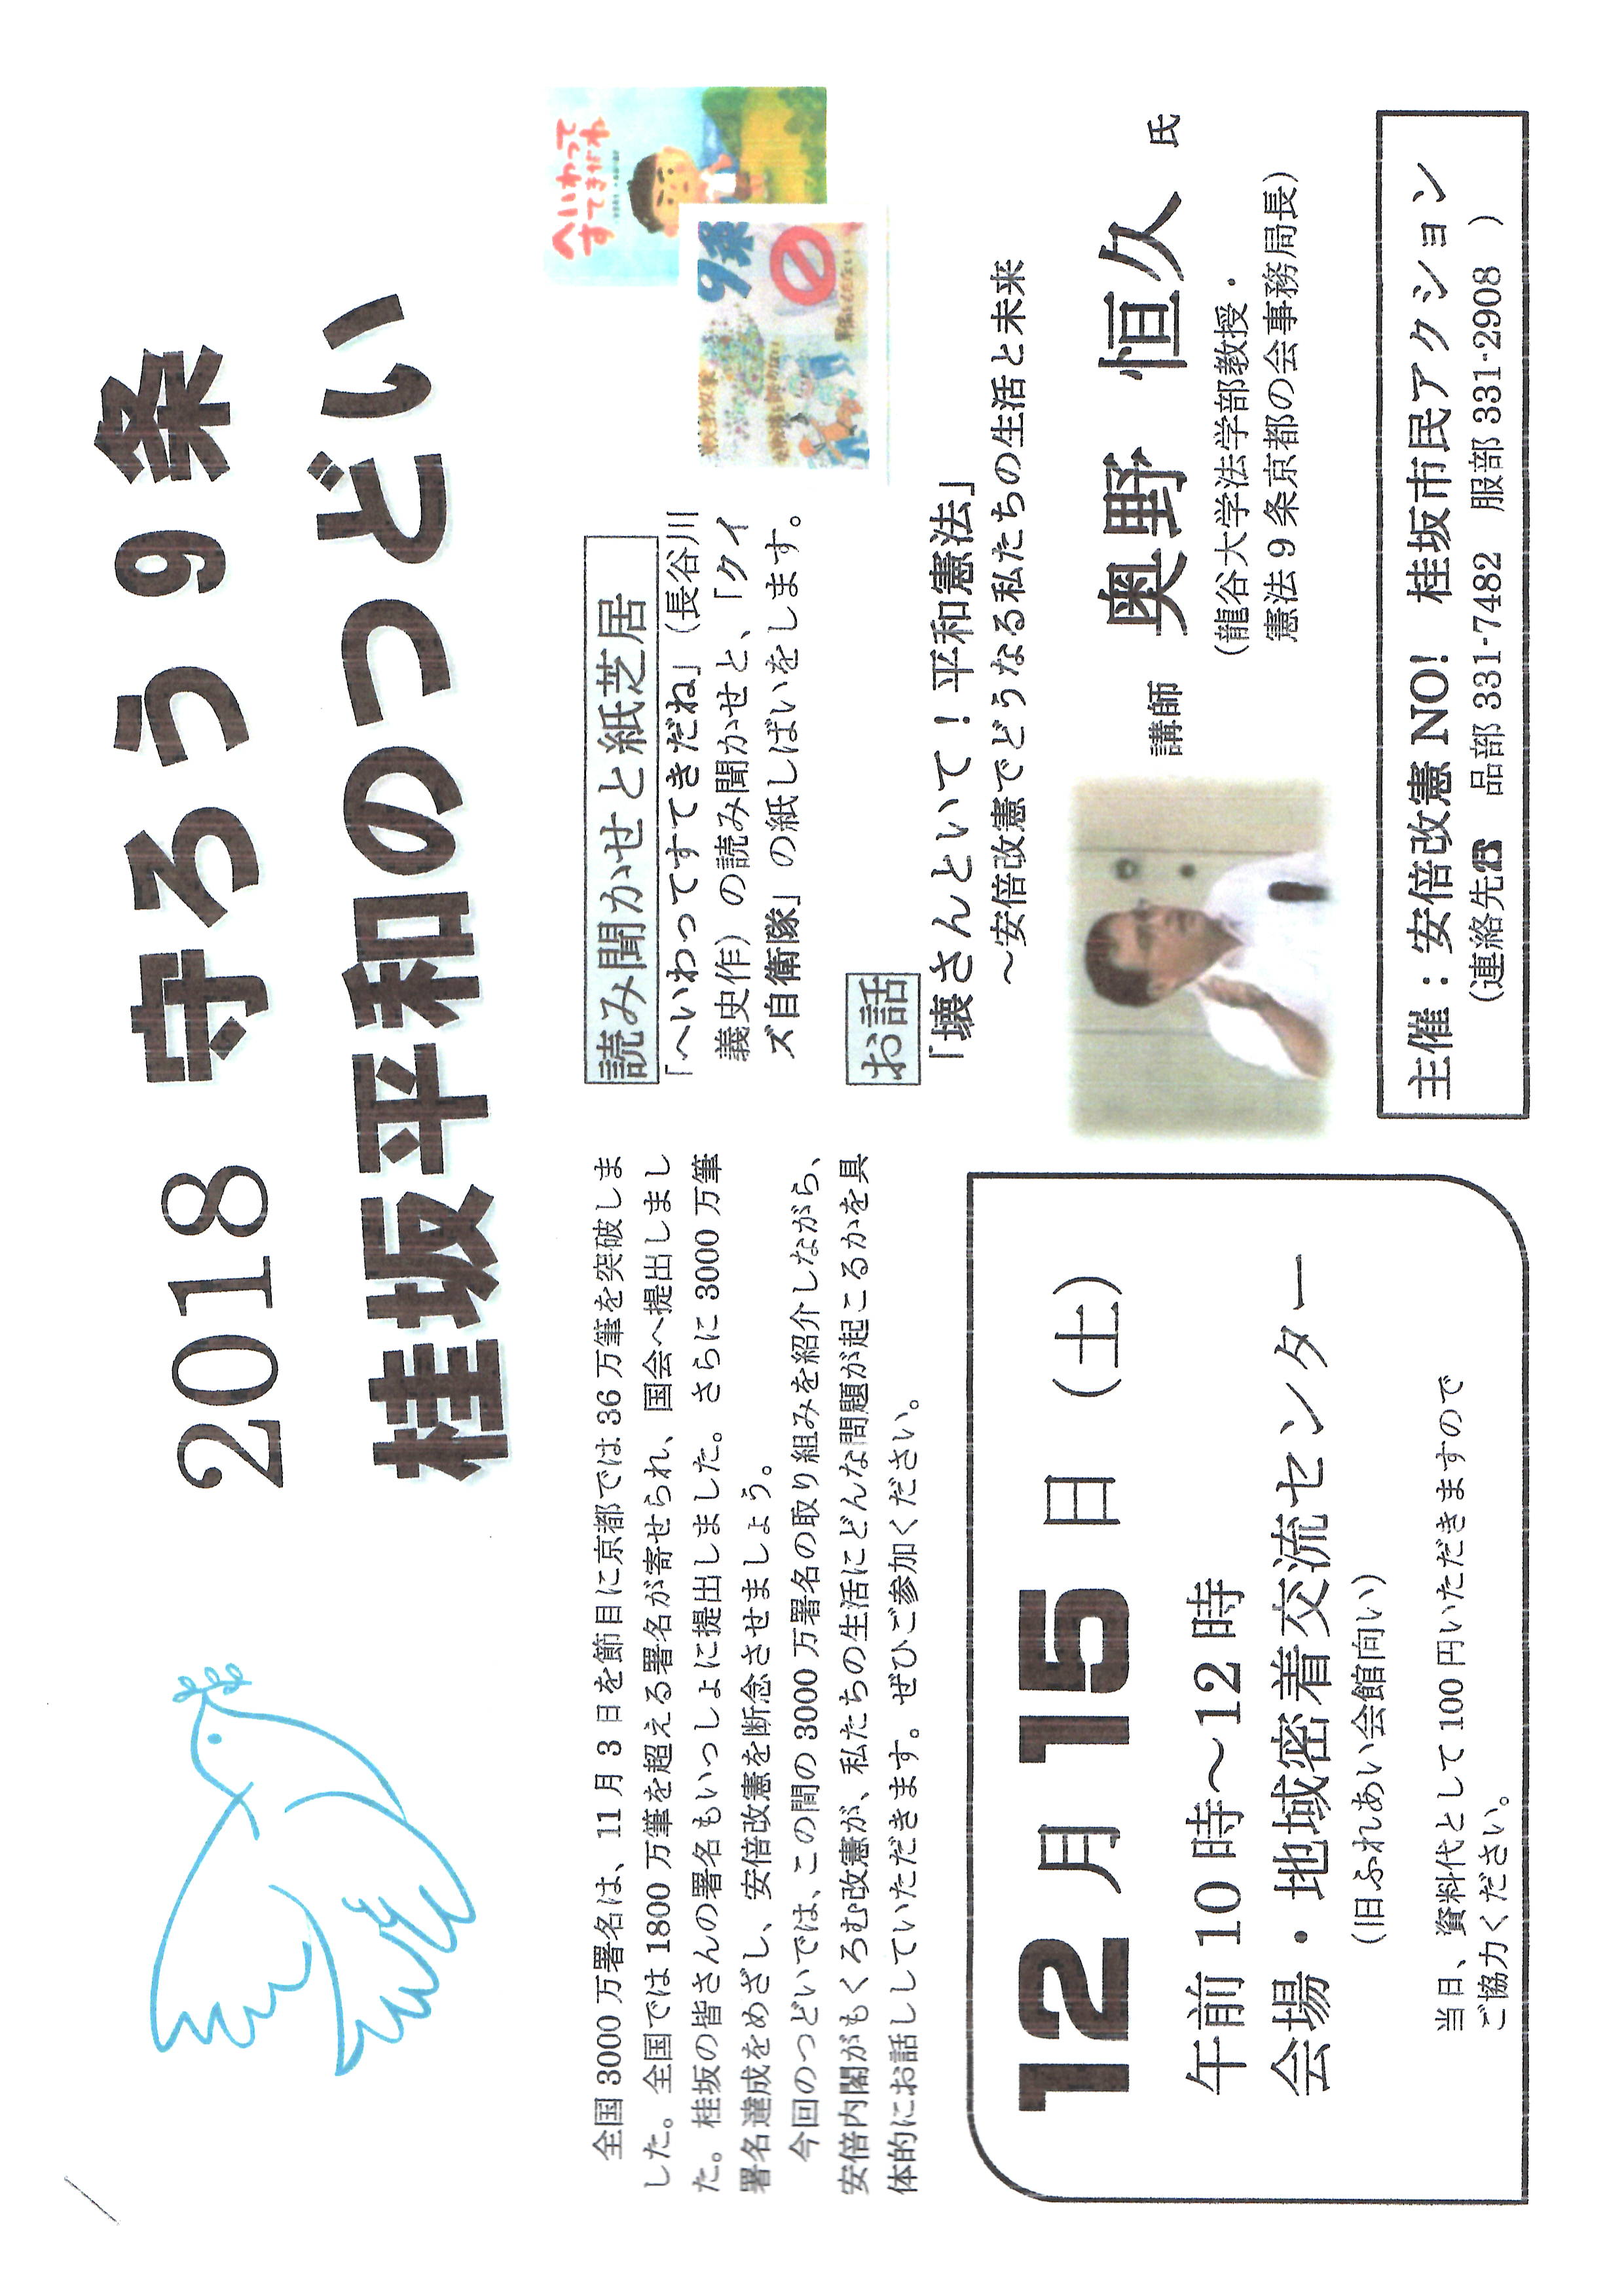 2018 守ろう9条
桂坂平和のつどい
全国3000万署名は、11月3日を節目に京都では36万筆を突破しま
した。全国では1800万筆を超える署名が寄せられ、国会へ提出しまし
た。桂坂の皆さんの署名もいっしょに提出しました。さらに3000万筆
署名達成をめざし、安倍改憲を断念させましょう。
今回のつどいでは、この間の3000万署名の取り組みを紹介しながら、
安倍内閣がもくろむ改憲が、私たちの生活にどんな問題が起こるかを具
体的にお話ししていただきます。ぜひご参加ください。
12月15日（土）
午前10時～12時
会場・地域密着交流センター
（旧ふれあい会館向い）
当日、資料代として100円いただきますので
ご協力ください。
読み聞かせと紙芝居
「へいわってすてきだね」（長谷川
義史作）の読み聞かせと、「クイ
ズ自衛隊」の紙しばいをします。
へいわって
すてきだね
9条
お話
「壊さんといて！平和憲法」
～安倍改憲でどうなる私たちの生活と未来
講師 奥野 恒久 氏
（龍谷大学法学部教授・
憲法9条京都の会事務局長）
主催：安倍改憲NO! 桂坂市民アクション
（連絡先☎ 品部331-7482 服部331-2908 ）